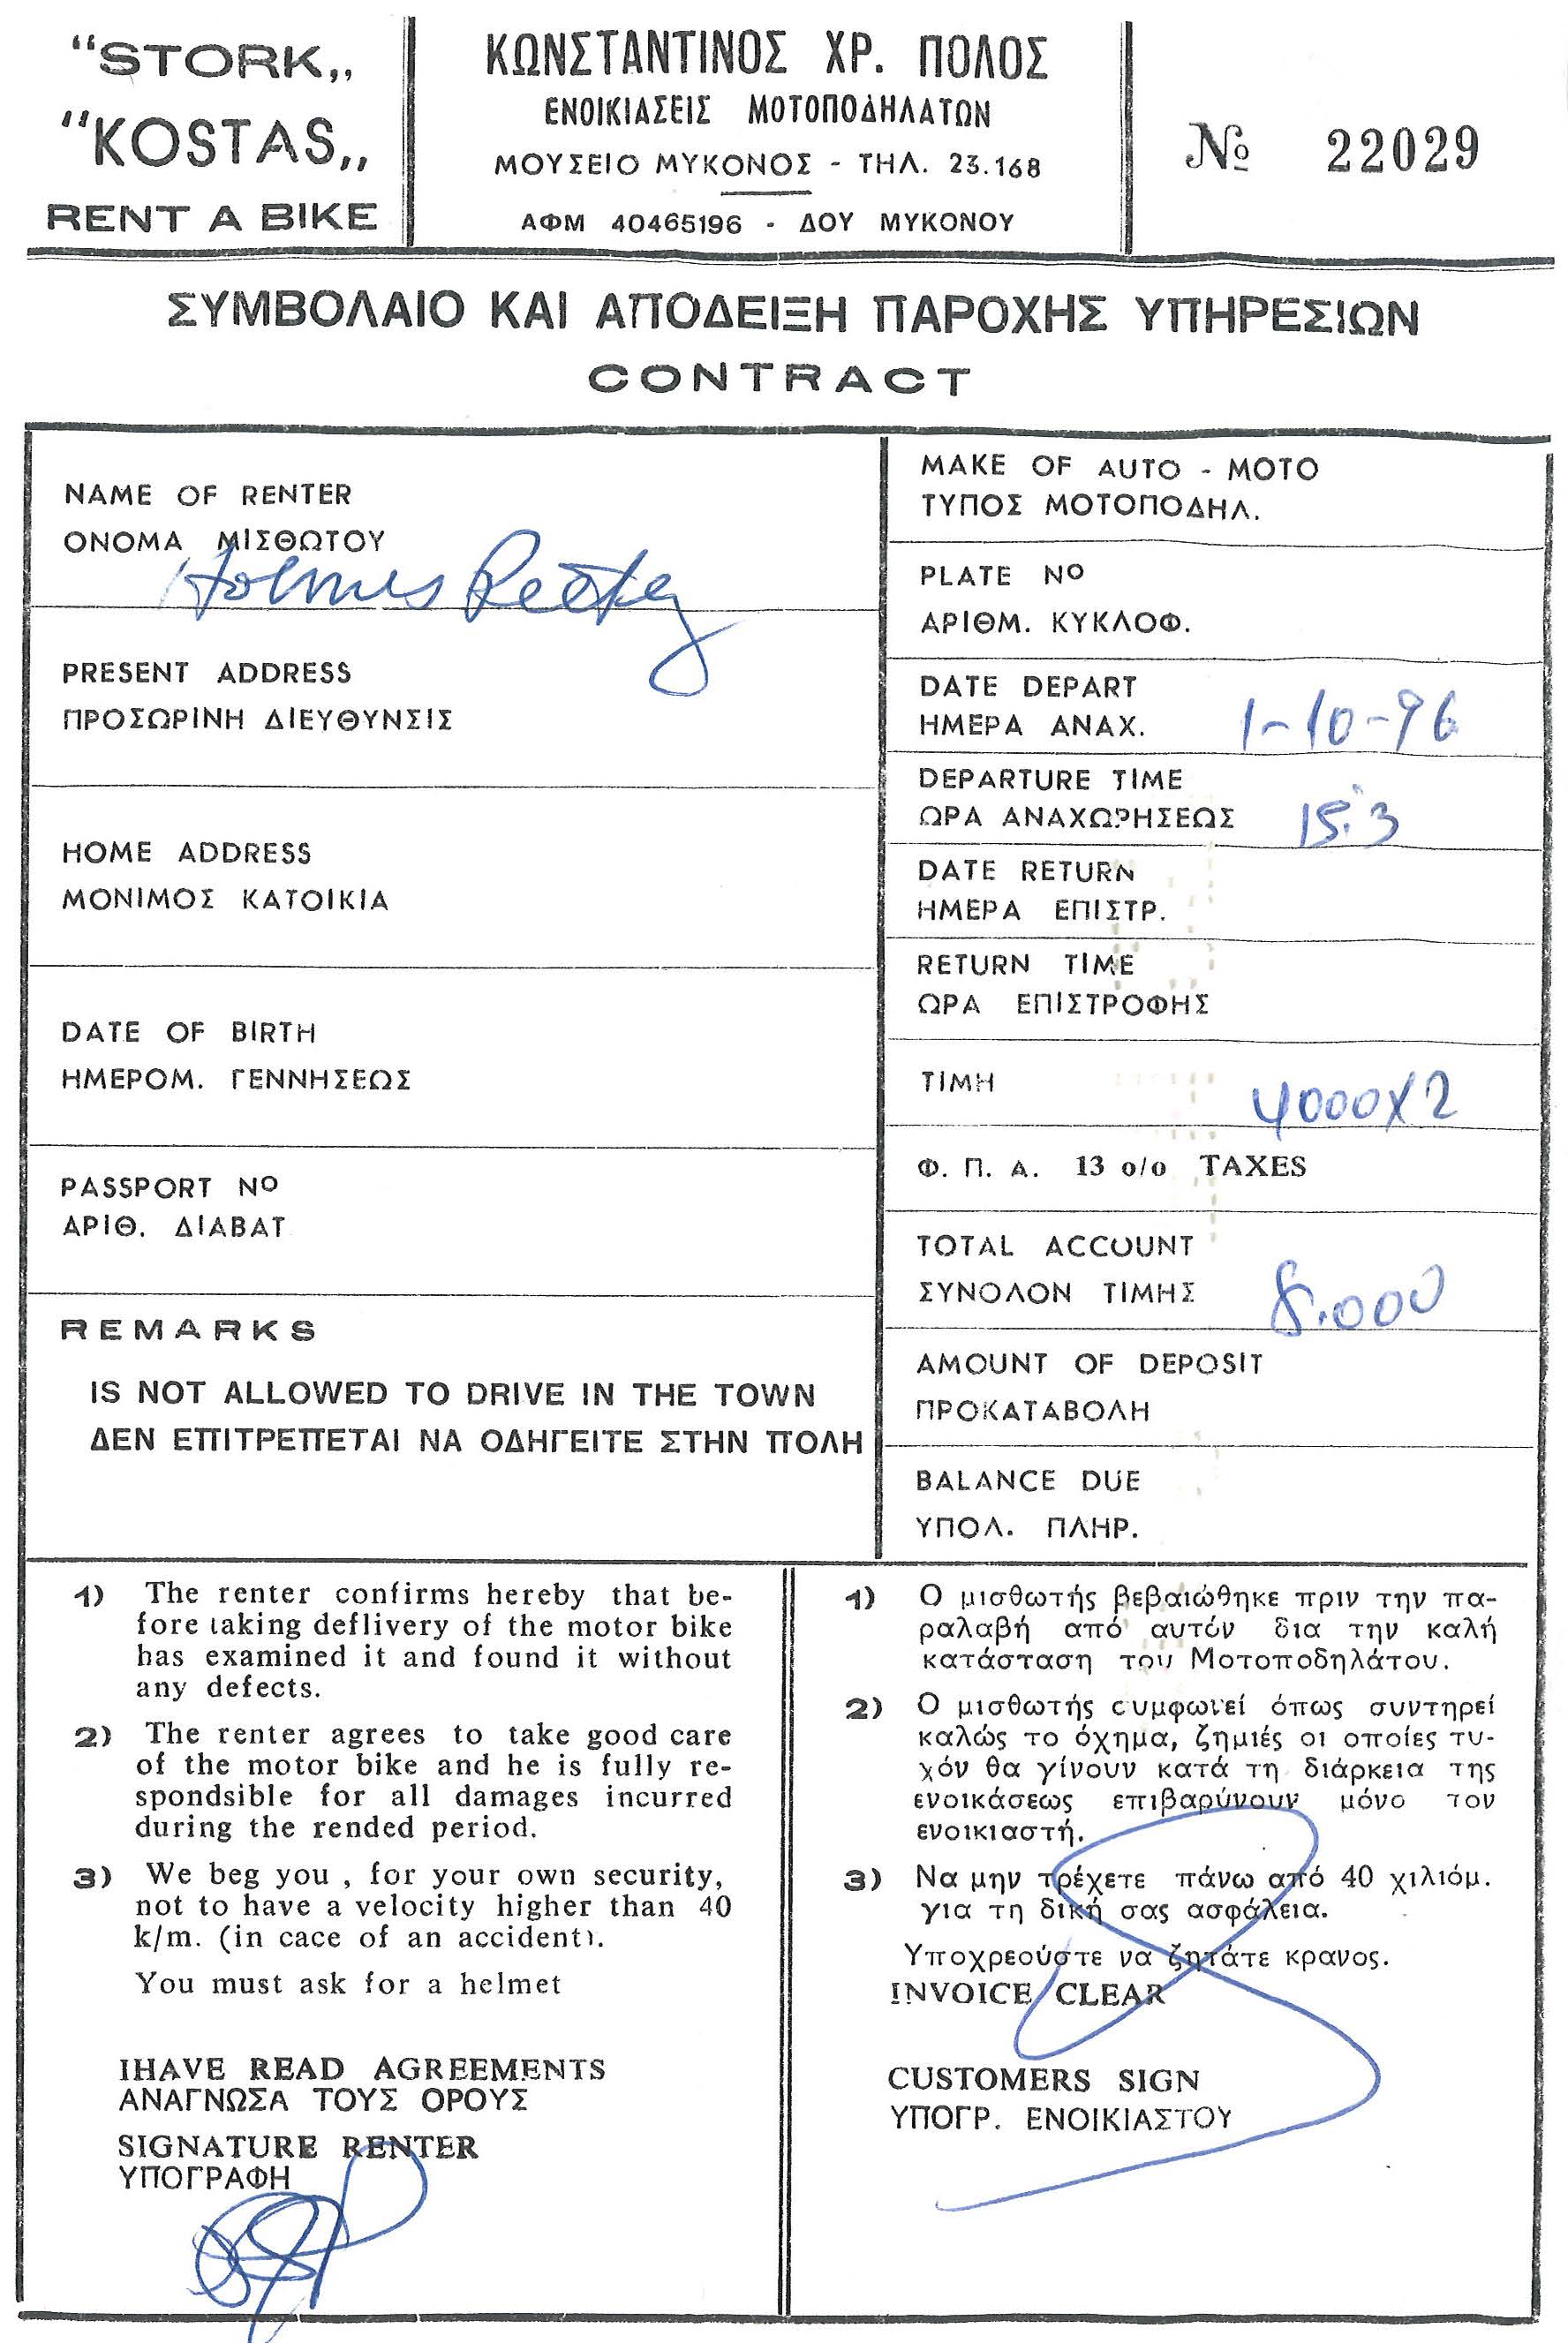 "STORK,,
"KOSTAS,,
RENT A BIKE
ΚΩΝΣΤΑΝΤΙΝΟΣ ΧΡ. ΠΟΛΟΣ
ΕΝΟΙΚΙΑΣΕΙΣ ΜΟΤΟΠΟΔΗΛΑΤΩΝ
ΜΟΥΣΕΙΟ ΜΥΚΟΝΟΣ - ΤΗΛ. 23.168
ΑΦΜ 40465196 - ΔΟΥ ΜΥΚΟΝΟΥ
№ 22029
ΣΥΜΒΟΛΑΙΟ ΚΑΙ ΑΠΟΔΕΙΞΗ ΠΑΡΟΧΗΣ ΥΠΗΡΕΣΙΩΝ
CONTRACT
NAME OF RENTER
ΟΝΟΜΑ ΜΙΣΘΩΤΟΥ
Holmes
PRESENT ADDRESS
ΠΡΟΣΩΡΙΝΗ ΔΙΕΥΘΥΝΣΙΣ
HOME ADDRESS
ΜΟΝΙΜΟΣ ΚΑΤΟΙΚΙΑ
DATE OF BIRTH
ΗΜΕΡΟΜ. ΓΕΝΝΗΣΕΩΣ
PASSPORT Nº
ΑΡΙΘ. ΔΙΑΒΑΤ
REMARKS
IS NOT ALLOWED TO DRIVE IN THE TOWN
ΔΕΝ ΕΠΙΤΡΕΠΕΤΑΙ ΝΑ ΟΔΗΓΕΙΤΕ ΣΤΗΝ ΠΟΛΗ
MAKE OF AUTO - MOTO
ΤΥΠΟΣ ΜΟΤΟΠΟΔΗΛ.
PLATE Nº
ΑΡΙΘΜ. ΚΥΚΛΟΦ.
DATE DEPART
ΗΜΕΡΑ ΑΝΑΧ. 1-10-96
DEPARTURE TIME
ΩΡΑ ΑΝΑΧΩΡΗΣΕΩΣ 15.3
DATE RETURN
ΗΜΕΡΑ ΕΠΙΣΤΡ.
RETURN TIME
ΩΡΑ ΕΠΙΣΤΡΟΦΗΣ
ΤΙΜΗ 4000X2
Φ. Π. Α. 13 o/o TAXES
TOTAL ACCOUNT
ΣΥΝΟΛΟΝ ΤΙΜΗΣ 8.000
AMOUNT OF DEPOSIT
ΠΡΟΚΑΤΑΒΟΛΗ
BALANCE DUE
ΥΠΟΛ. ΠΛΗΡ.
1) The renter confirms hereby that be-
fore taking deflivery of the motor bike
has examined it and found it without
any defects.
2) The renter agrees to take good care
of the motor bike and he is fully re-
spondsible for all damages incurred
during the rended period.
3) We beg you , for your own security,
not to have a velocity higher than 40
k/m. (in cace of an accident).
You must ask for a helmet
IHAVE READ AGREEMENTS
ΑΝΑΓΝΩΣΑ ΤΟΥΣ ΟΡΟΥΣ
SIGNATURE RENTER
ΥΠΟΓΡΑΦΗ
1) Ο μισθωτής βεβαιώθηκε πριν την πα-
ραλαβή από αυτόν δια την καλή
κατάσταση του Μοτοποδηλάτου.
2) Ο μισθωτής συμφωνεί όπως συντηρεί
καλώς το όχημα, ζημιές οι οποίες τυ-
χόν θα γίνουν κατά τη διάρκεια της
ενοικάσεως επιβαρύνουν μόνο τον
ενοικιαστή.
3) Να μην τρέχετε πάνω από 40 χιλιόμ.
για τη δική σας ασφάλεια.
Υποχρεούστε να ζητάτε κρανος.
INVOICE CLEAR
CUSTOMERS SIGN
ΥΠΟΓΡ. ΕΝΟΙΚΙΑΣΤΟΥ